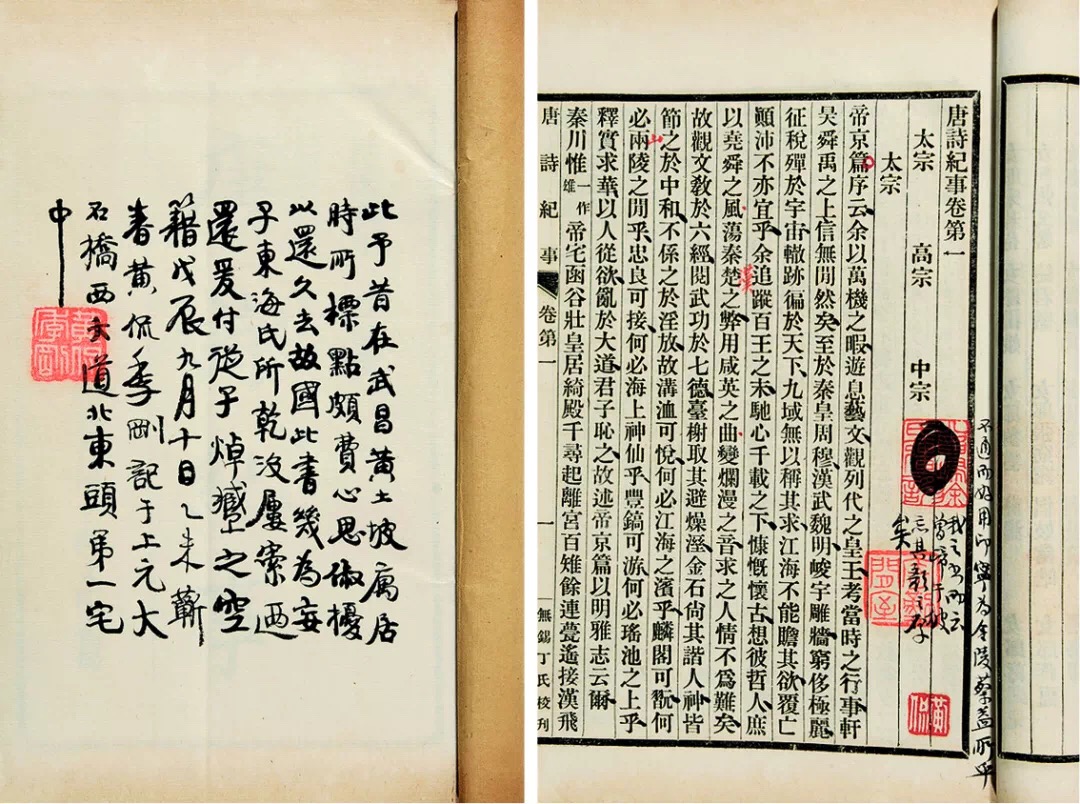 此予昔在武昌黃土坡寓居
時所標點頗費心思俶擾
以還久去故國此書幾為妄
子東海氏所乾沒屢索迺
還爰付從子焯臧之空
籍戊辰九月十日乙未蘄
春黃侃季剛記于上元大
石橋西大道北東頭第一宅
中
黃侃季剛
不通而好用印寧為金陵蔡益所乎
唐詩紀事卷第一
太宗 高宗 中宗
太宗
帝京篇序云余以萬機之暇遊息藝文觀列代之皇王考當時之行事軒
昊舜禹之上信無閒然矣至於秦皇周穆漢武魏明峻宇雕牆窮侈極麗
征稅殫於宇宙轍跡徧於天下九域無以稱其求江海不能贍其欲覆亡
顛沛不亦宜乎余追蹤百王之末馳心千載之下慷慨懷古想彼哲人庶
以堯舜之風蕩秦楚之弊用咸英之曲變爛漫之音求之人情不爲難矣
故觀文敎於六經閱武功於七德臺榭取其避燥溼金石尚其諧人神皆
節之於中和不係之於淫放故溝洫可悅何必江海之濱乎麟閣可翫何
必兩陵之閒乎忠良可接何必海上神仙乎豐鎬可游何必瑤池之上乎
釋實求華以人從欲亂於大道君子恥之故述帝京篇以明雅志云爾
秦川惟一作雄帝宅函谷壯皇居綺殿千尋起離宮百雉餘連甍遙接漢飛
唐詩紀事 卷第一 一 無錫丁氏校刊